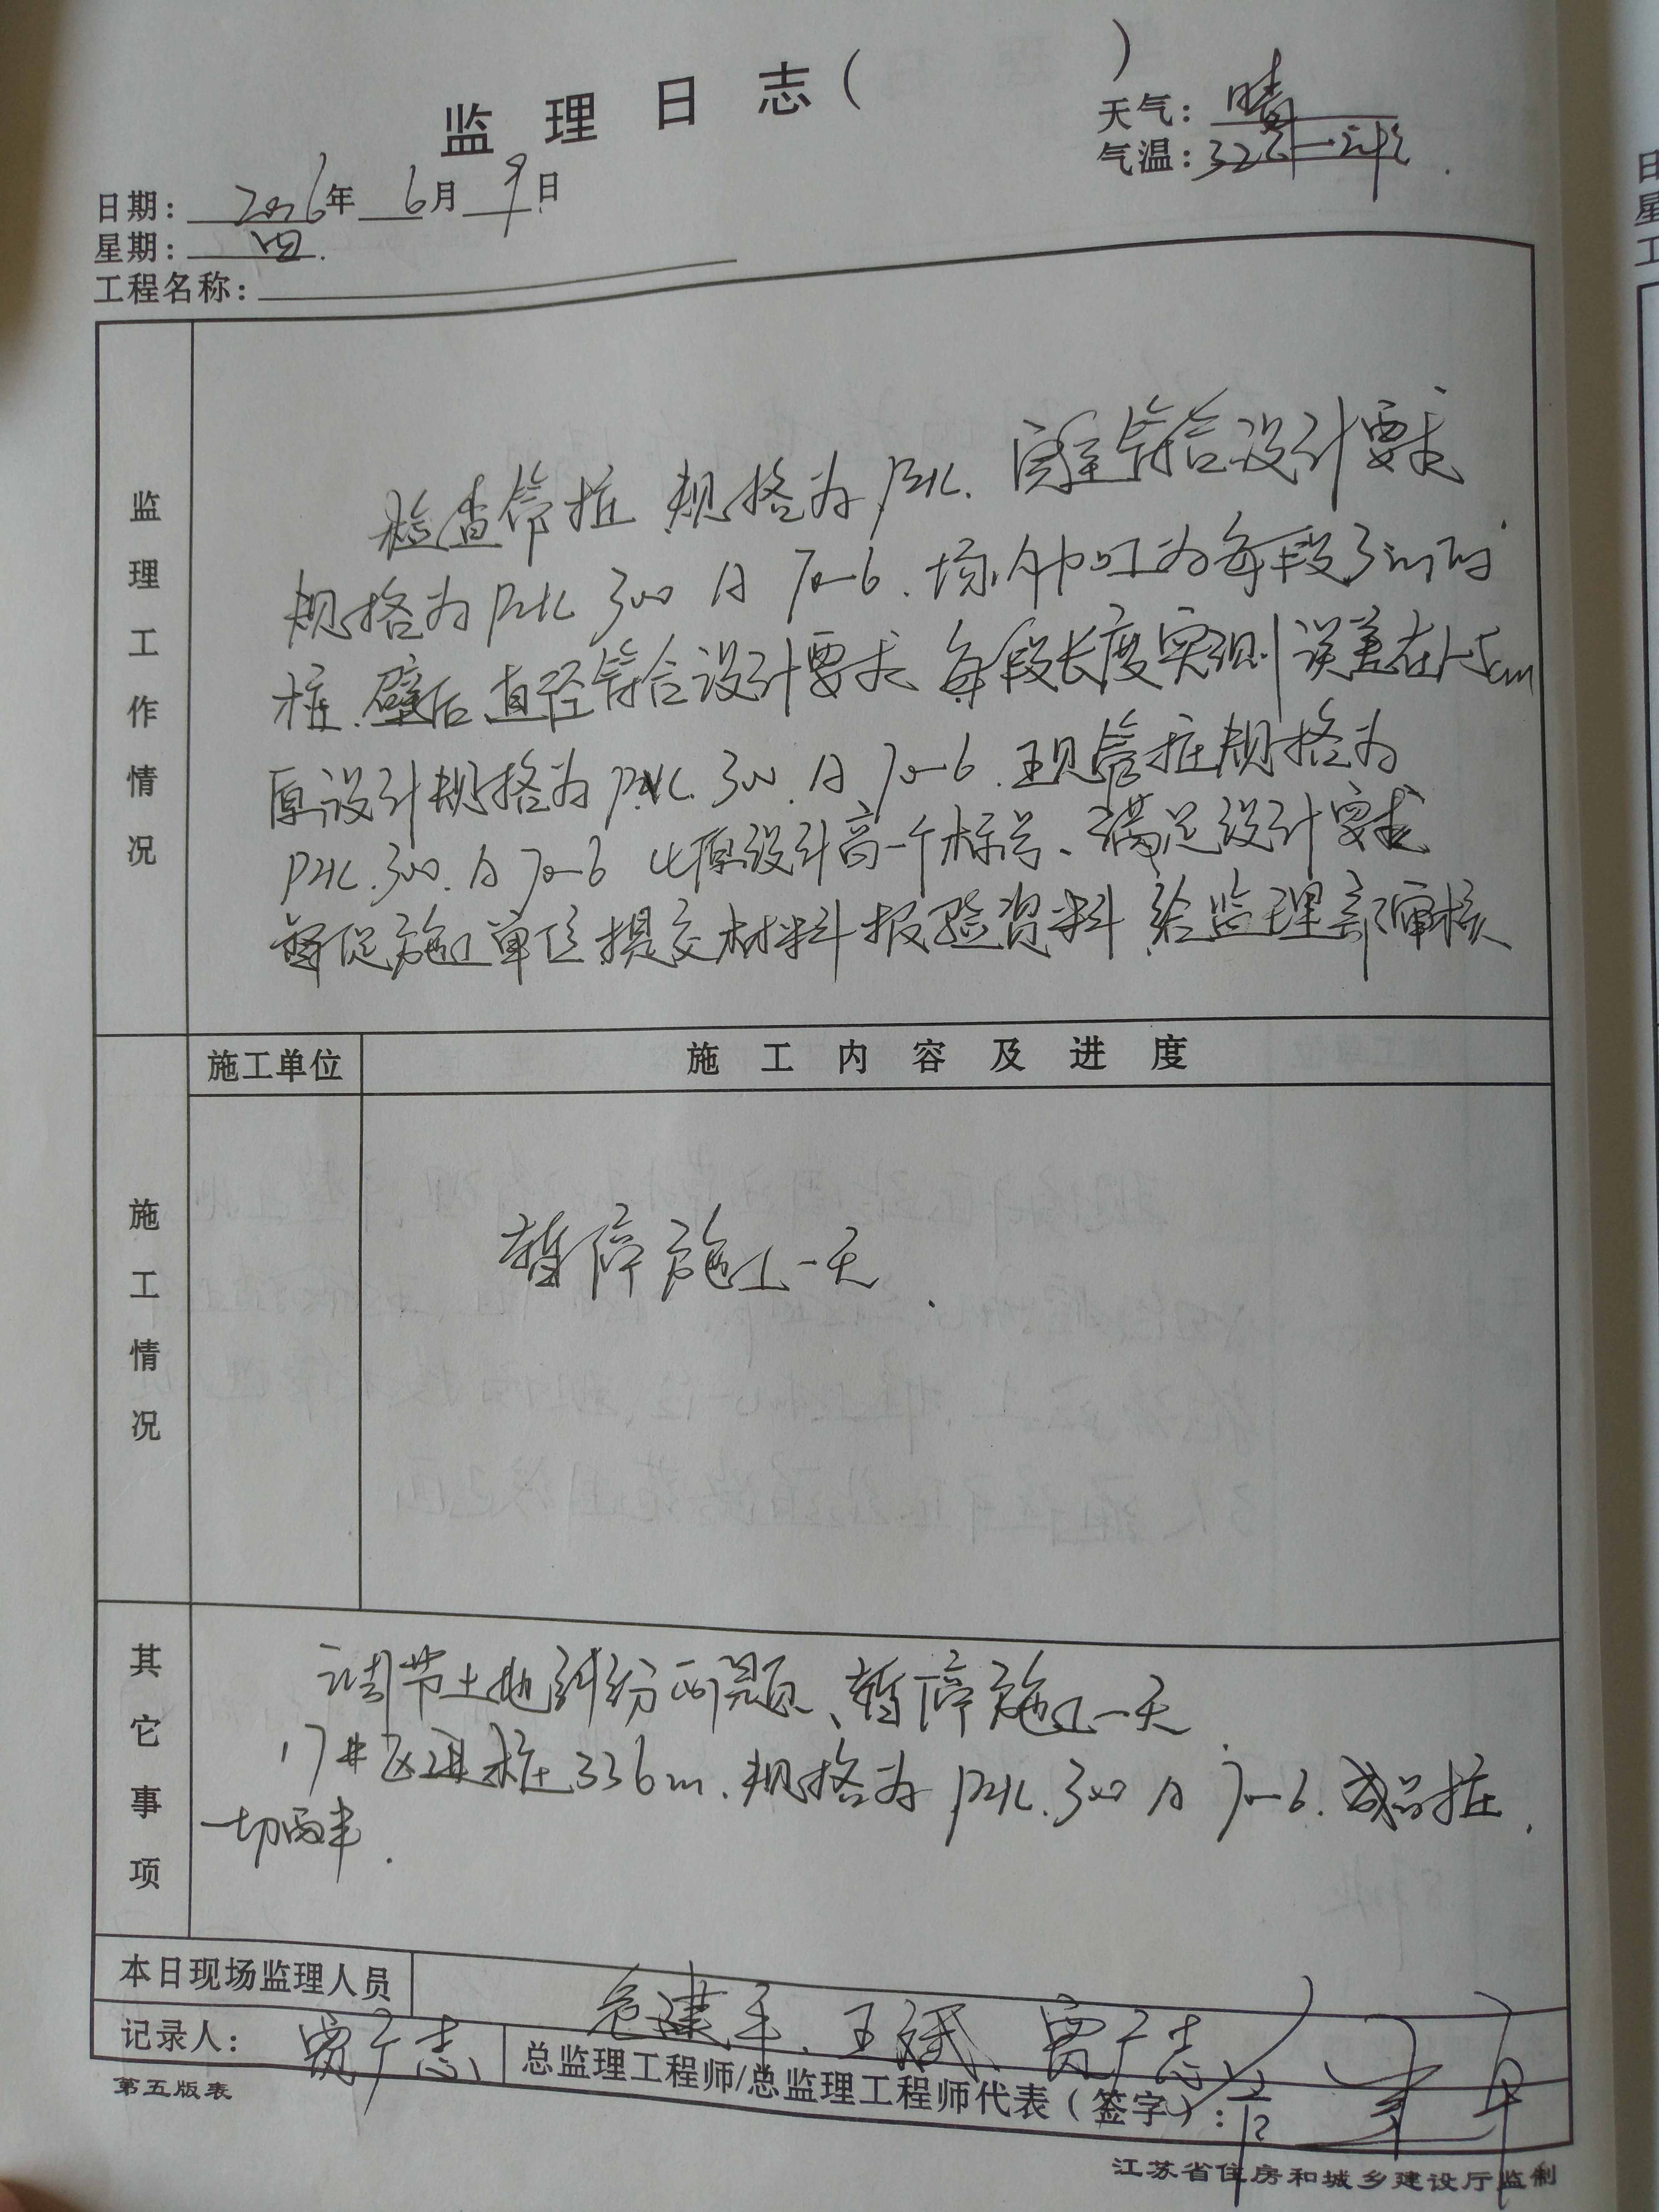 监理日志( )
天气：晴
气温：32
日期：2016年6月9日
星期：四
工程名称：
监理工作情况
检查管桩 规格为PHC. 符合设计要求
规格为PHC 300 A 70-6. 场内 为每段3m的
桩.壁厚.直径符合设计要求 每段长度实测误差在1-5cm
原设计规格为PHC.300.A 70-6.现管桩规格为
PHC.300.A 70-6 比原设计高一个标号、满足设计要求
督促施工单位提交材料报验资料 给监理部审核
施工单位
施工内容及进度
施工情况
暂停施工一天.
其它事项
调节土地纠纷问题、暂停施工一天.
17#区进桩336m.规格为PHC.300 A 70-6.成品桩.
一切两半.
本日现场监理人员
建军、王斌、贾广志
记录人：贾广志
总监理工程师/总监理工程师代表（签字）：
第五版表
江苏省住房和城乡建设厅监制